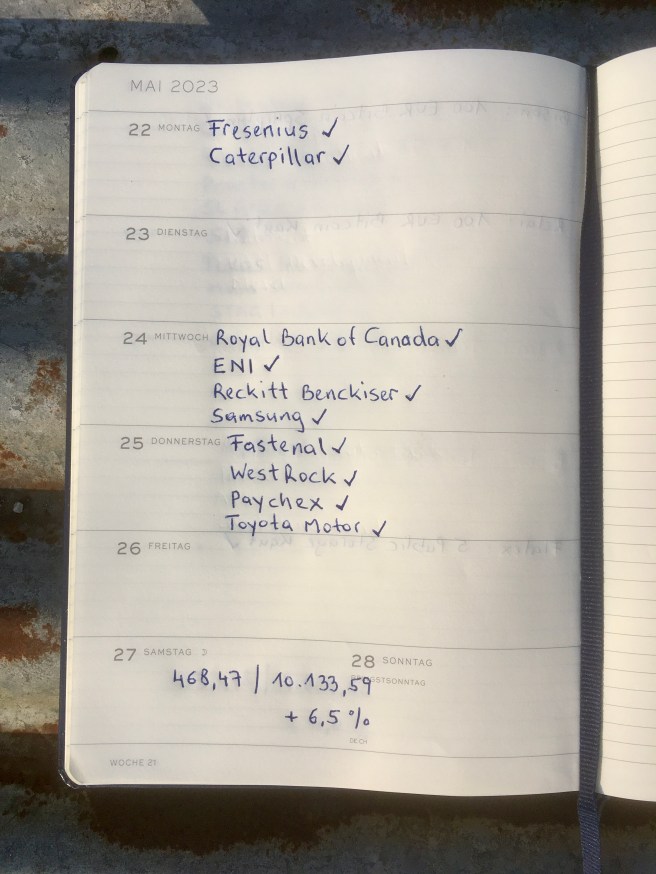 MAI 2023
22 MONTAG Fresenius ✓
Caterpillar ✓
23 DIENSTAG
24 MITTWOCH Royal Bank of Canada ✓
ENI ✓
Reckitt Benckiser ✓
Samsung ✓
25 DONNERSTAG Fastenal ✓
WestRock ✓
Paychex ✓
Toyota Motor ✓
26 FREITAG
27 SAMSTAG
28 SONNTAG
468,47 | 10.133,59
+ 6,5 %
WOCHE 21